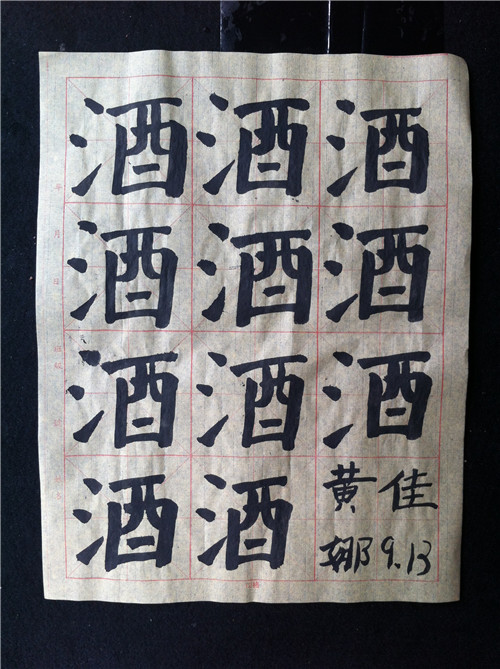 酒酒酒
酒酒酒
酒酒酒
酒酒黄佳
娜9.13